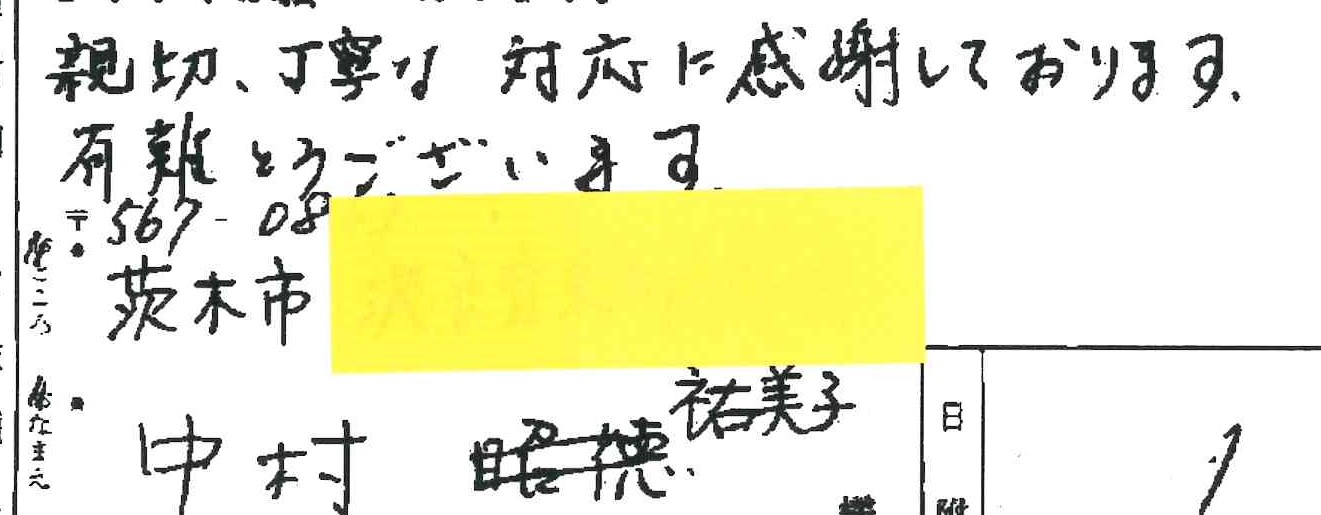 親切、丁寧な 対応に感謝しております。
有難とうございます。
〒567-08
おところ
茨木市
祐美子
おなまえ
中村 昭徳
日附
1